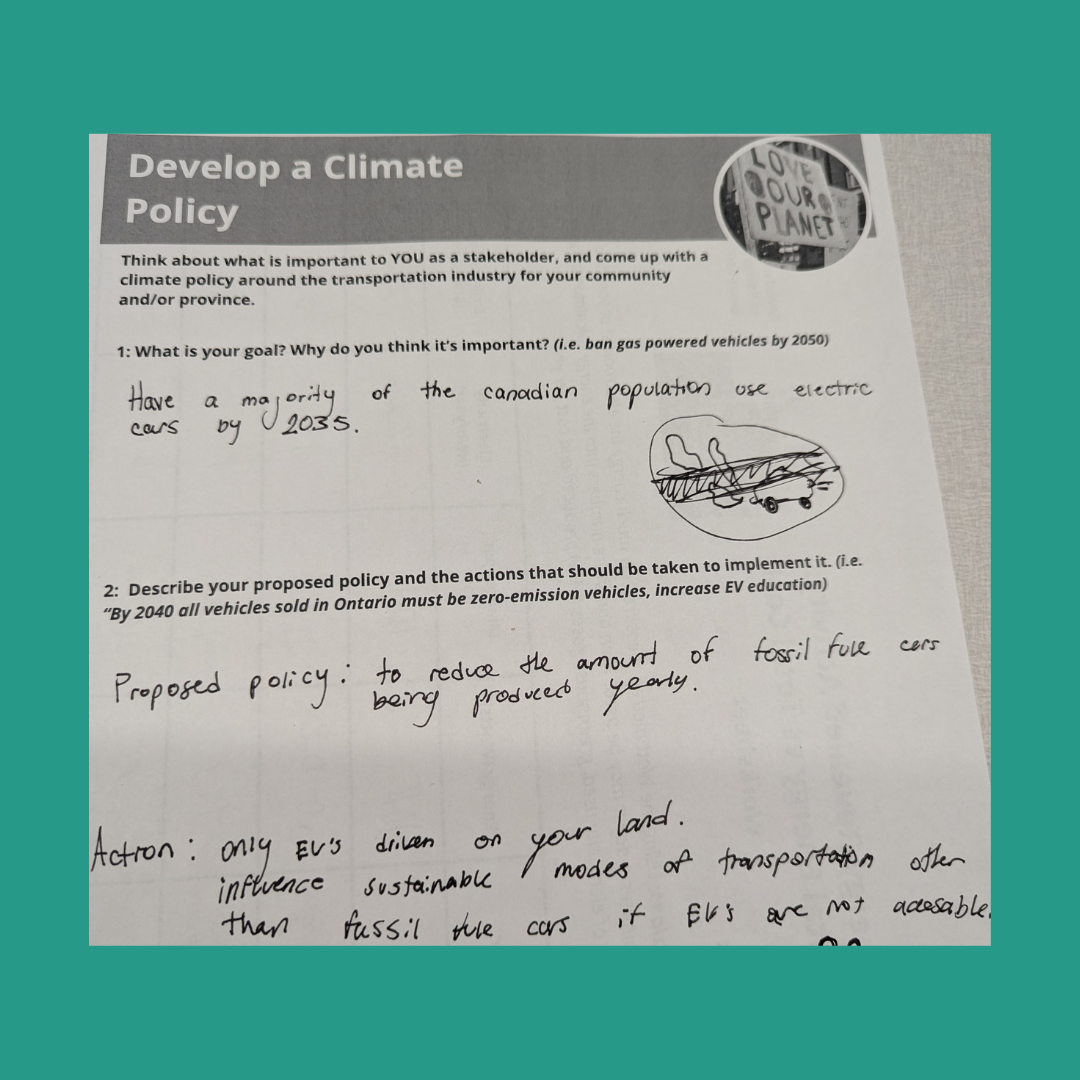 Develop a Climate
Policy
LOVE
OUR
PLANET
Think about what is important to YOU as a stakeholder, and come up with a
climate policy around the transportation industry for your community
and/or province.
1: What is your goal? Why do you think it's important? (i.e. ban gas powered vehicles by 2050)
Have a majority of the canadian population use electric
cars by 2035.
2: Describe your proposed policy and the actions that should be taken to implement it. (i.e.
"By 2040 all vehicles sold in Ontario must be zero-emission vehicles, increase EV education)
Proposed policy: to reduce the amount of fossil fule cars
being produced yearly.
Action: only EV's driven on your land.
influence sustainable modes of transportation other
than fussil fule cars if EV's are not accesable.